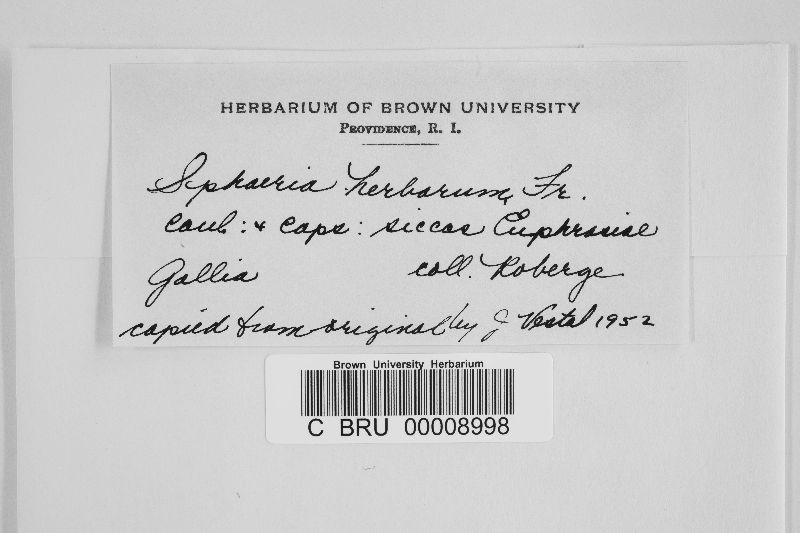 HERBARIUM OF BROWN UNIVERSITY
PROVIDENCE, R. I.
Sphaeria herbarum, Fr.
caul: & caps: siccas Euphrasiae
Gallia coll. Roberge
copied from original by J Vestal 1952
Brown University Herbarium
C BRU 00008998